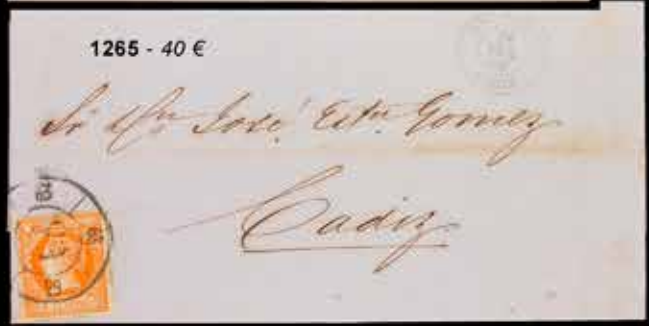 1265 - 40 €
Sr Dn José Estn Gomez
Cadiz